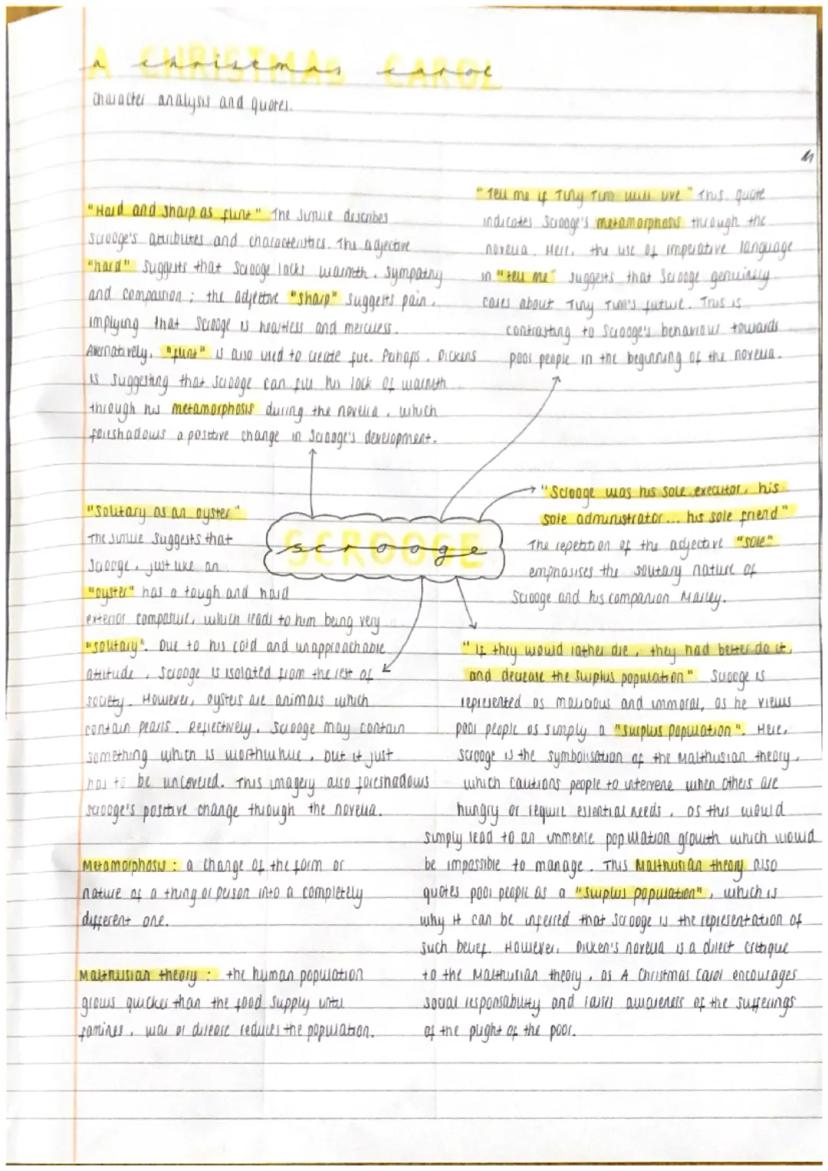 A CHRISTMAS CAROL
a christmas carol
character analysis and quotes.
"Hard and sharp as flint" The simile describes
scrooge's attributes and characteristics. The adjective
"hard" suggests that Scrooge lacks warmth, sympathy
and compassion; the adjective "sharp" suggests pain,
implying that Scrooge is heartless and merciless.
Alternatively, "flint" is also used to create fire. Perhaps, Dickens
is suggesting that Scrooge can fill his lack of warmth
through his metamorphosis during the novella, which
foreshadows a positive change in Scrooge's development.
"Tell me if Tiny Tim will live" This quote
indicates Scrooge's metamorphosis through the
novella. Here, the use of imperative language
in "tell me" suggests that Scrooge genuinely
cares about Tiny Tim's future. This is
contrasting to Scrooge's behaviour towards
poor people in the beginning of the novella.
"Solitary as an oyster"
The simile suggests that
Scrooge, just like an
"oyster" has a tough and hard
exterior composure, which leads to him being very
"solitary". Due to his cold and unapproachable
attitude, Scrooge is isolated from the rest of
society. However, oysters are animals which
contain pearls. Reflectively, Scrooge may contain
something which is worthwhile, but it just
has to be uncovered. This imagery also foreshadows
scrooge's positive change through the novella.
SCROOGE
scrooge
"Scrooge was his sole executor, his
sole administrator... his sole friend"
The repetition of the adjective "sole"
emphasises the solitary nature of
Scrooge and his companion Marley.
"If they would rather die, they had better do it,
and decrease the surplus population" Scrooge is
represented as malicious and immoral, as he views
poor people as simply a "surplus population". Here,
scrooge is the symbolisation of the Malthusian theory,
which cautions people to intervene when others are
hungry or require essential needs, as this would
simply lead to an immense population growth which would
be impossible to manage. This Malthusian theory also
quotes poor people as a "surplus population", which is
why it can be inferred that Scrooge is the representation of
such belief. However, Dicken's novella is a direct critique
to the Malthusian theory, as A Christmas Carol encourages
social responsability and raises awareness of the sufferings
of the plight of the poor.
Metamorphosis: a change of the form or
nature of a thing or person into a completely
different one.
Malthusian theory: the human population
grows quicker than the food supply until
famines, war or disease reduces the population.